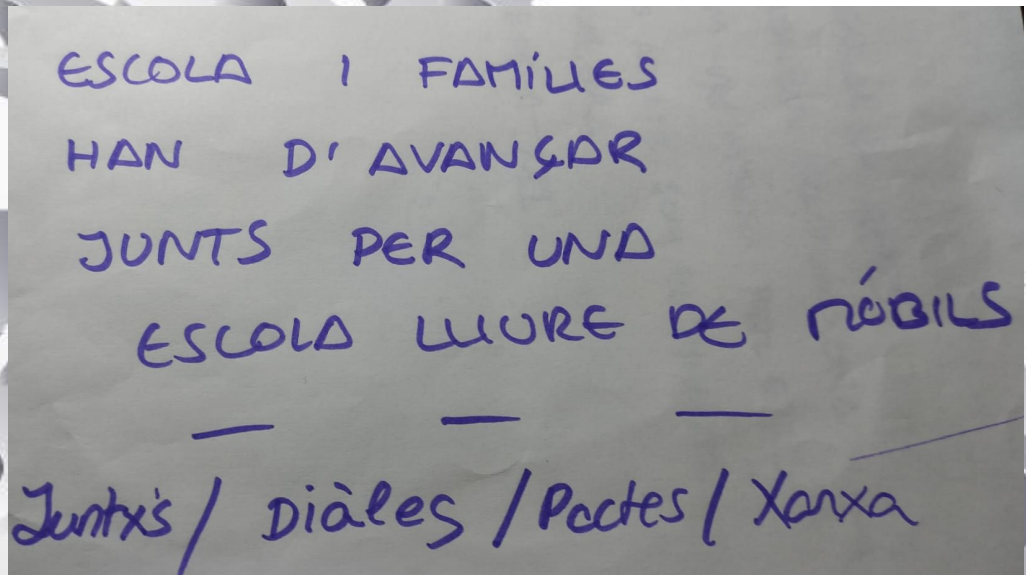 ESCOLA I FAMÍLIES
HAN D'AVANÇAR
JUNTS PER UNA
ESCOLA LLIURE DE MÓBILS
— — —
Juntxs / Diàleg / Pactes / Xarxa